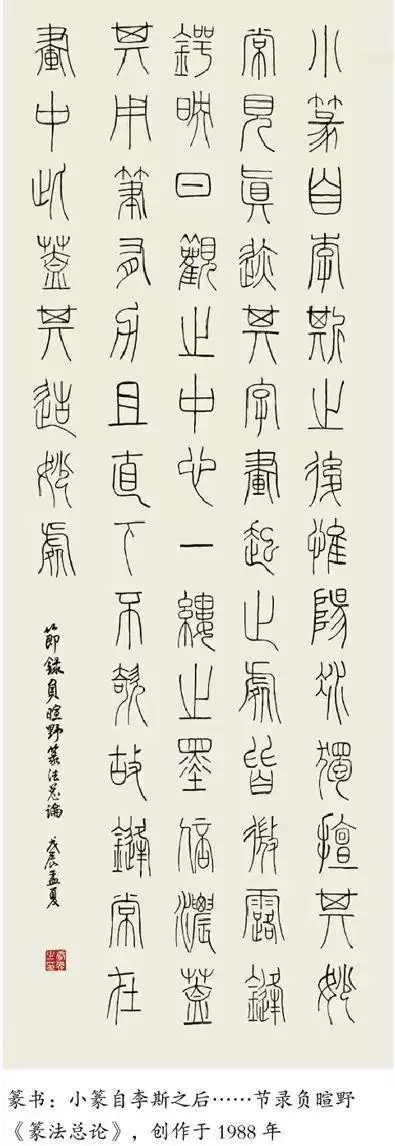 小篆自李斯之後惟陽冰獨擅其妙
常見真迹其字畫起止處皆微露鋒
鍔映日觀之中心一縷之墨倍濃蓋
其用筆有力且直下不欹故鋒常在
畫中此蓋其造妙處
節錄負暄野篆法总論 戊辰孟夏
篆书：小篆自李斯之后……节录负暄野
《篆法总论》，创作于 1988 年